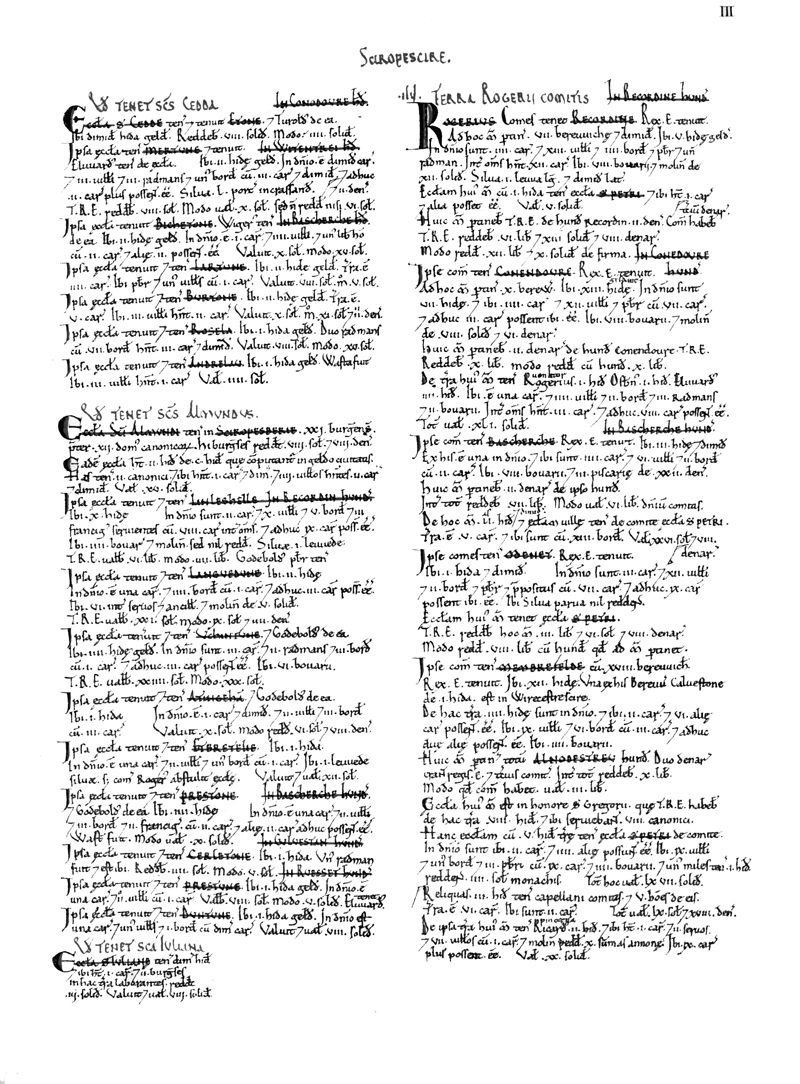 III
SCIROPESCIRE.
Qđ TENET SCS CEDDA IN CONODOVRE HD.
Eccła S CEDDE ten 7 tenuit ETONE. 7 Turold de ea.
Ibi dimiđ hida gelđ. Reddeb. viii. soliđ. Modo. iiii. soliđ.
Ipsa eccła ten MERTUNE 7 tenuit.
Eluuard ten de eccła. Ibi. ii. hidę gelđ. In dnio. ē dimiđ car.
7 iii. uilłi 7 iii. radmans 7 un borđ cū. iii. car 7 dimiđ. 7 adhuc
.ii. car plus possen̄t. ēē. Silua. L. porc incrassand.
T.R.E. reddb. viii. sol. Modo uał. x. soł.
Ipsa eccła tenuit Wiger ten IN BASCHERCHE HD.
de ea. Ibi. ii. hidę gelđ. In dnio. ē. i. car. 7 iiii. uilłi. 7 un lib hō
cū. ii. car 7 alię. ii. possen̄t. ēē. Valuit. x. soł. modo. xv. soł.
Ipsa eccła tenuit 7 ten Ibi. ii. hidę gelđ. Tra. ē
.iiii. car. Ibi pbr 7 un uilłs cū. i. car. Valuit. viii. soł. m̊. v. soł.
Ipsa eccła tenuit 7 ten BURTONE. Ibi. ii. hidę gelđ. Tra. ē
v. car. Ibi. iii. uilłi hn̄t. ii. car. Valuit. x. soł. m̊. xi. soł. 7 ii. den.
Ipsa eccła tenuit 7 ten ROSELA. Ibi. i. hida gelđ. Duo radmans
cū. vii. borđ hn̄t. iii. car 7 dimiđ. Valuit. viii. soł. Modo. xv. soł.
Ipsa eccła tenuit 7 ten Ibi. i. hida gelđ. Wasta fuit.
Ibi. iii. uilłi hn̄t. i. car. Vał. iiii. soł.
Qđ TENET SCS ALMUNDUS.
Eccła SCI ALMUNDI ten in SCIROPESBERIE. xxi. burgens.
7 pter. xii. dom canonicoȝ. hi burgses reddt. viii. soł. 7 viii. den.
Eadē eccła ht. ii. hiđ de. c. hiđ que cōputant in geldo ciuitatis.
Has ten. ii. canonici. 7 ibi hn̄t. i. car 7 dim. 7 iiii. uilłos hn̄tes. ii. car
7 dimiđ. Vał. xv. soliđ.
Ipsa eccła tenuit 7 ten IN RECORDIN HUND.
Ibi. x. hidę In dnio sunt. ii. car. 7 x. uilłi 7 v. borđ 7 iii.
francig seruientes cū. viii. car int om̄s. 7 adhuc. ix. car poss. ēē.
Ibi. iiii. bouar 7 molin sed nil redđ. Siluæ. i. leuuede.
T.R.E. ualb. vi. lib. modo. viii. lib. Godebold pbr ten
Ipsa eccła tenuit 7 ten Ibi. iii. hidę
In dnio. ē una car. 7 iii. borđ cū. i. car. 7 adhuc. iii. car poss. ēē.
Ibi. vi. int seruos 7 ancill. 7 molin de. v. soliđ.
T.R.E. ualb. xxi. soł. modo. ix. soł. 7 viii. den
Ipsa eccła tenuit 7 ten 7 Godebold de ea
Ibi. iiii. hidę gelđ. In dnio sunt. iii. car. 7 ii. radmans 7 iii. borđ
cū. i. car. 7 adhuc. iii. car possen̄t. ēē. Ibi. vi. bouarii.
T.R.E. ualb. xxiiii. soł. Modo. xxx. soł.
Ipsa eccła tenuit 7 ten 7 Godebold de ea.
Ibi. i. hida In dnio. ē. i. car 7 dimiđ. 7 ii. uilłi 7 iii. borđ
cū. iii. car. Valuit. x. soł. Modo redđ. vi. soł. 7 viii. den.
Ipsa eccła tenuit 7 ten Ibi. i. hida.
In dnio. ē una car. 7 iii. uilłi 7 un borđ cū. i. car. Ibi. i. leuuede
siluæ. sȝ com Roger abstulit eccłę. Valuit 7 uał. xii. soł.
Ipsa eccła tenuit 7 ten PRESTONE. IN BASCHERCHE HUND.
7 Godebold de ea. Ibi. iii. hidę In dnio. ē una car. 7 iii. uilłi
7 iii. borđ 7 iii. francig cū. ii. car. 7 alię. ii. car adhuc possen̄t. ēē.
Wast fuit. Modo uał. x. soliđ.
Ipsa eccła tenuit 7 ten Ibi. i. hida. Vn radman
fuit 7 est ibi. Reddb. iiii. soł. Modo. v. soł. IN RUESSET HUND.
Ipsa eccła tenuit 7 ten PRESTONE. Ibi. i. hida gelđ. In dnio. ē
una car. 7 iii. uilłi cū. i. car. Valb. viii. soł. Modo. v. soliđ.
Ipsa eccła tenuit 7 ten Ibi. i. hida gelđ. In dnio est
una car. 7 un uilłs 7 i. borđ cū dim car. Valuit 7 uał. viii. soliđ.
Qđ TENET SCA IULIANA
Eccła S IULIANE ten dim hiđ
7 ibi ht. i. car. 7 ii. burgses
in hac tra laborantes. reddt
.iii. soliđ. Valuit 7 uał. viii. soliđ.
.iiii. TERRA ROGERII COMITIS IN RECORDINE HUND
ROGERIUS Comes tenet RECORDINE. Rex. E. tenuit.
Ad hoc M ptin. vii. bereuuichę 7 dimiđ. Ibi. v. hidę gelđ.
In dnio sunt. iii. car. 7 xii. uilłi 7 iiii borđ 7 pbr 7 un
radman. Int om̄s hn̄t. xii. car. Ibi. viii. bouarii. 7 molin de
xii. soliđ. Silua. i. leuua lḡ. 7 dimiđ lat.
Ecclam hui M cū. i. hida ten eccła S PETRI. 7 ibi ht. i. car
7 alia posset ēē. Vał. v. soliđ.
Huic M ptineb T.R.E. de hund Recordin. ii. den. Com habeb
T.R.E. reddeb. vi. lib 7 xiii soliđ 7 viii. denar.
Modo redđ. xii. lib 7 x. soliđ de firma. IN CONEDOURE
Ipse com ten CONENDOVRE. Rex. E. tenuit. HUND
Ad hoc M ptin. x. berew. Ibi. xiii. hidę. In dnio sunt
vii. hidę. 7 ibi. iiii. car. 7 xii. uilłi 7 pbr cū. vii. car.
7 adhuc. iii. car possent ibi. ēē. Ibi. viii. bouarii. 7 molin
de. viii. soliđ 7 vi. denar.
Huic M ptineb. ii. denar de hund Conendoure T.R.E.
Reddeb. x. lib. modo redđ cū hund. x. lib.
De tra hui M ten Rogerius. i. hiđ Osbn. i. hiđ. Eluuard
.iii. hiđ. Ibi. ē una car. 7 iiii. uilłi 7 ii. borđ 7 iii. radmans
7 ii. bouarii. Int om̄s hn̄t. iii. car. 7 adhuc. viii. car possen̄t. ēē.
Tot uał. xl. i. soliđ. IN BASCHERCHE HUND
Ipse com ten BASCHERCHE Rex. E. tenuit. Ibi. iii. hidę 7 dimiđ
Ex his. ē una in dnio. 7 ibi sunt. iii. car. 7 vi. uilłi 7 ii. borđ
cū. ii. car. Ibi. viii. bouarii. 7 iii. piscarię de. xx. ii. den.
Huic M ptineb. ii. denar de ipso hund.
Int tot reddeb. vii. lib. Modo uał. vi. lib.
De hoc M. ii. hiđ 7 ecclam uille ten de comite eccła S PETRI.
Tra. ē. v. car. 7 ibi sunt cū. xiii. borđ. Vał. xxvi. soł. 7 viii.
Ipse comes ten Rex. E. tenuit. denar.
Ibi. i. hida 7 dimiđ. In dnio sunt. iii. car. 7 xii. uilłi
7 ii. borđ 7 pbr 7 ppositus cū. vii. car. 7 adhuc. ix. car
possent ibi. ēē. Ibi Silua parua nil reddens.
Ecclam hui M tenet S PETR.
T.R.E. reddb hoc M. iii. lib 7 vi. soł 7 viii. denar.
Modo redđ. viii. lib cū hund qđ ad M ptinet.
Ipse com ten MEMBREFELDE cū. xviii. bereuuich
Rex. E. tenuit. Ibi. xii. hidę. Una ex his Bereuui Calvestone
de. i. hida. est in Wirecestrescire.
De hac tra. iiii. hidę sunt in dnio. 7 ibi. ii. car. 7 vi. alię
car possen̄t. ēē. Ibi. ix. uilłi 7 vi. borđ cū. iii. car. 7 adhuc
duę alię possen̄t. ēē. Ibi. iiii. bouarii.
Huic M ptin totū ALNODESTREU hund. Duo denar
eran̄t regis. E. 7 tcius comit. Int tot reddeb. x. lib.
Modo qđ com habet. uał. iii. lib.
Eccła hui M est in honore S Gregorii. que T.R.E. habeb
de hac tra. viii. hiđ. 7 ibi seruiebant. viii. canonici.
Hanc ecclam cū. v. hiđ træ ten eccła S PETRI de comite.
In dnio sunt ibi. ii. car. 7 iiii. alię possunt. ēē. Ibi. ix. uilłi
7 un borđ 7 iii. pbri cū. ix. car. 7 iiii. bouarii. 7 un miles ten. i. hiđ
reddens. iiii. soł monachis. Tot hoc uał. lx viii. soliđ.
Reliquas. iii. hiđ ten capellani comitis. 7 v. hōes de eis.
Tra. ē. vi. car. Ibi sunt. ii. car. Tot uał. lx. soł. 7 xviii. den.
De ipsa tra hui M ten Ricard. iii. hiđ. 7 ibi ht. i. car. 7 ii. seruos.
7 vii. uilłos cū. i. car. 7 molin redđ. x. sūmas annonę. Ibi. ix. car
plus possent. ēē. Vał. xx. soliđ.